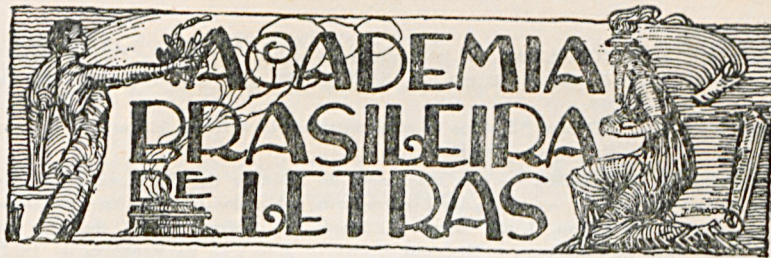 ACADEMIA
BRASILEIRA
DE LETRAS